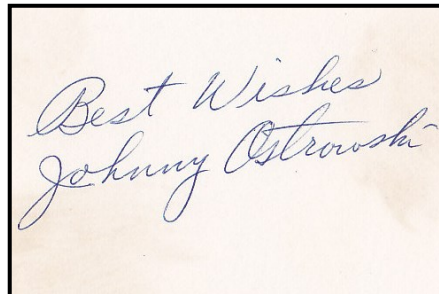 Best Wishes
Johnny Ostrowski